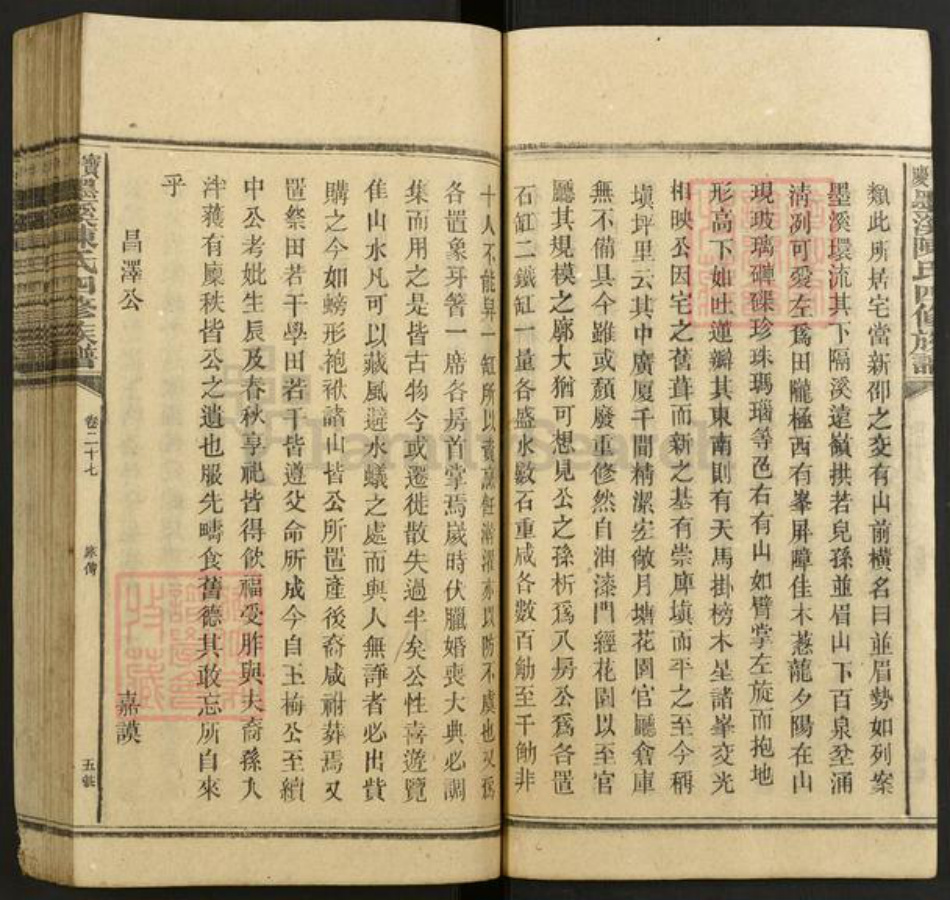 類此所居宅當新邵之交有山前橫名曰並眉勢如列案
墨溪環流其下隔溪遠嶺拱若兒孫並眉山下百泉坌涌
清冽可愛左爲田隴極西有峯屏障佳木蔥蘢夕陽在山
現玻璃硨磲珍珠瑪瑙等色右有山如臂掌左旋而抱地
形高下如吐蓮瓣其東南則有天馬掛榜木星諸峯交光
相映公因宅之舊葺而新之基有崇庳塡而平之至今稱
塡坪里云其中廣廈千間精潔宏敞月塘花園官廳倉庫
無不備具今雖或頹廢重修然自油漆門經花園以至官
廳其規模之廓大猶可想見公之孫析爲八房公爲各置
石缸二鐵缸一量各盛水數石重咸各數百觔至千觔非
十人不能舁一缸所以資烹飪澣濯亦以防不虞也又爲
各置象牙箸一席各房首掌焉歲時伏臘婚喪大典必調
集而用之是皆古物今或遷徙散失過半矣公性喜遊覽
佳山水凡可以藏風避水蟻之處而與人無諍者必出貲
購之今如螃形袍袱諸山皆公所置產後裔咸祔葬焉又
置祭田若干學田若干皆遵父命所成今自玉梅公至續
中公考妣生辰及春秋享祀皆得飲福受胙與夫裔孫入
泮穫有廩秩皆公之遺也服先疇食舊德其敢忘所自來
乎
昌澤公
嘉謨
寶慶墨溪陳氏四修族譜
卷二十七
五
Search